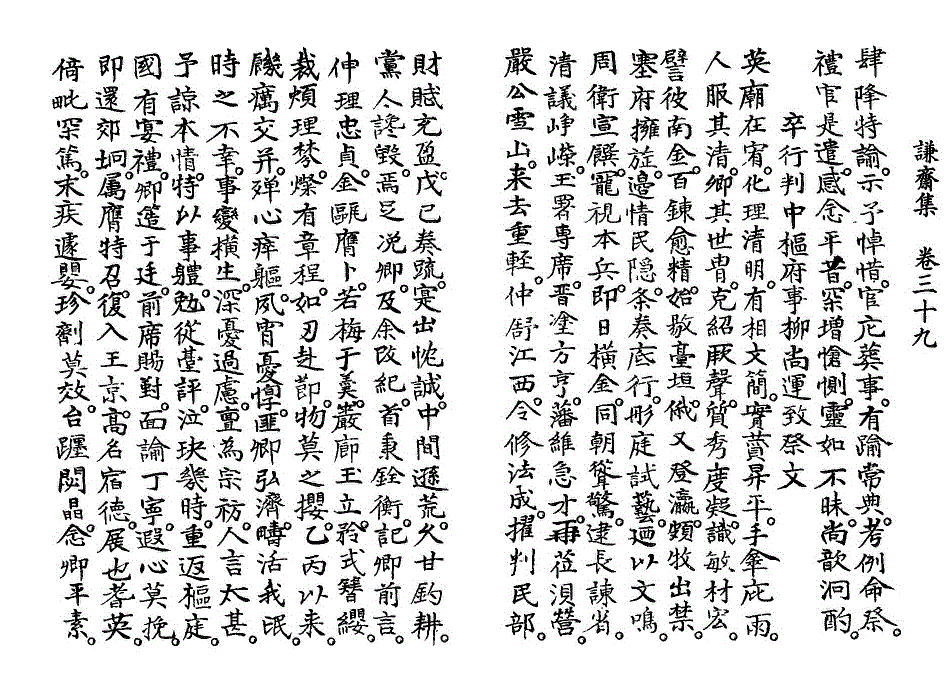 謙齋集　卷三十九
肆降特諭。示予悼惜。官庀葬事。有踰常典。考例命祭。
禮官是遣。感念平昔。罙增愴惻。靈如不昧。尚歆泂酌。
卒行判中樞府事柳尚運致祭文
英廟在宥。化理清明。有相文簡。實贊昇平。手傘庇雨。
人服其清。卿其世胄。克紹厥聲。質秀度凝。識敏材宏。
譬彼南金。百鍊愈精。始敭臺垣。俄又登瀛。頗牧出禁。
塞府擁旌。邊情民隱。条奏底行。彤庭試藝。廼以文鳴。
周衛宣饌。寵視本兵。即日橫金。同朝聳驚。建長諫省。
清議崢嶸。王署專席。晋塗方亨。藩維急才。再莅浿營。
嚴公雪山。来去重輕。仲舒江西。令修法成。擢判民部。
財賦充盈。戊己奏疏。寔出忱誠。中間遜荒。久甘釣耕。
黨人讒毀。焉足况卿。及余改紀。首秉銓衡。記卿前言。
伸理忠貞。金甌膺卜。若梅于羹。巖廊玉立。矜式簪纓。
裁煩理棼。燦有章程。如刃赴節。物莫之攖。乙丙以来。
饑癘交并。殫心瘁軀。夙宵憂惸。匪卿弘濟。疇活我氓。
時之不幸。事變橫生。深憂過慮。亶為宗祊。人言太甚。
予諒本情。特以事軆。勉從臺評。泣玦幾時。重返樞庭。
國有宴禮。卿造于廷。前席賜對。面諭丁寧。遐心莫挽。
即還郊坰。属膺特召。復入王京。高名宿德。展也耆英。
倚毗罙篤。末疾遽嬰。珍劑莫效。台躔閟晶。念卿平素。